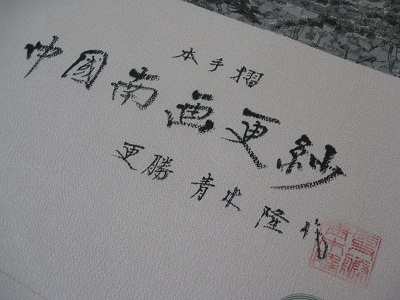 本手摺
中國南画更紗
更勝 青木 隆作